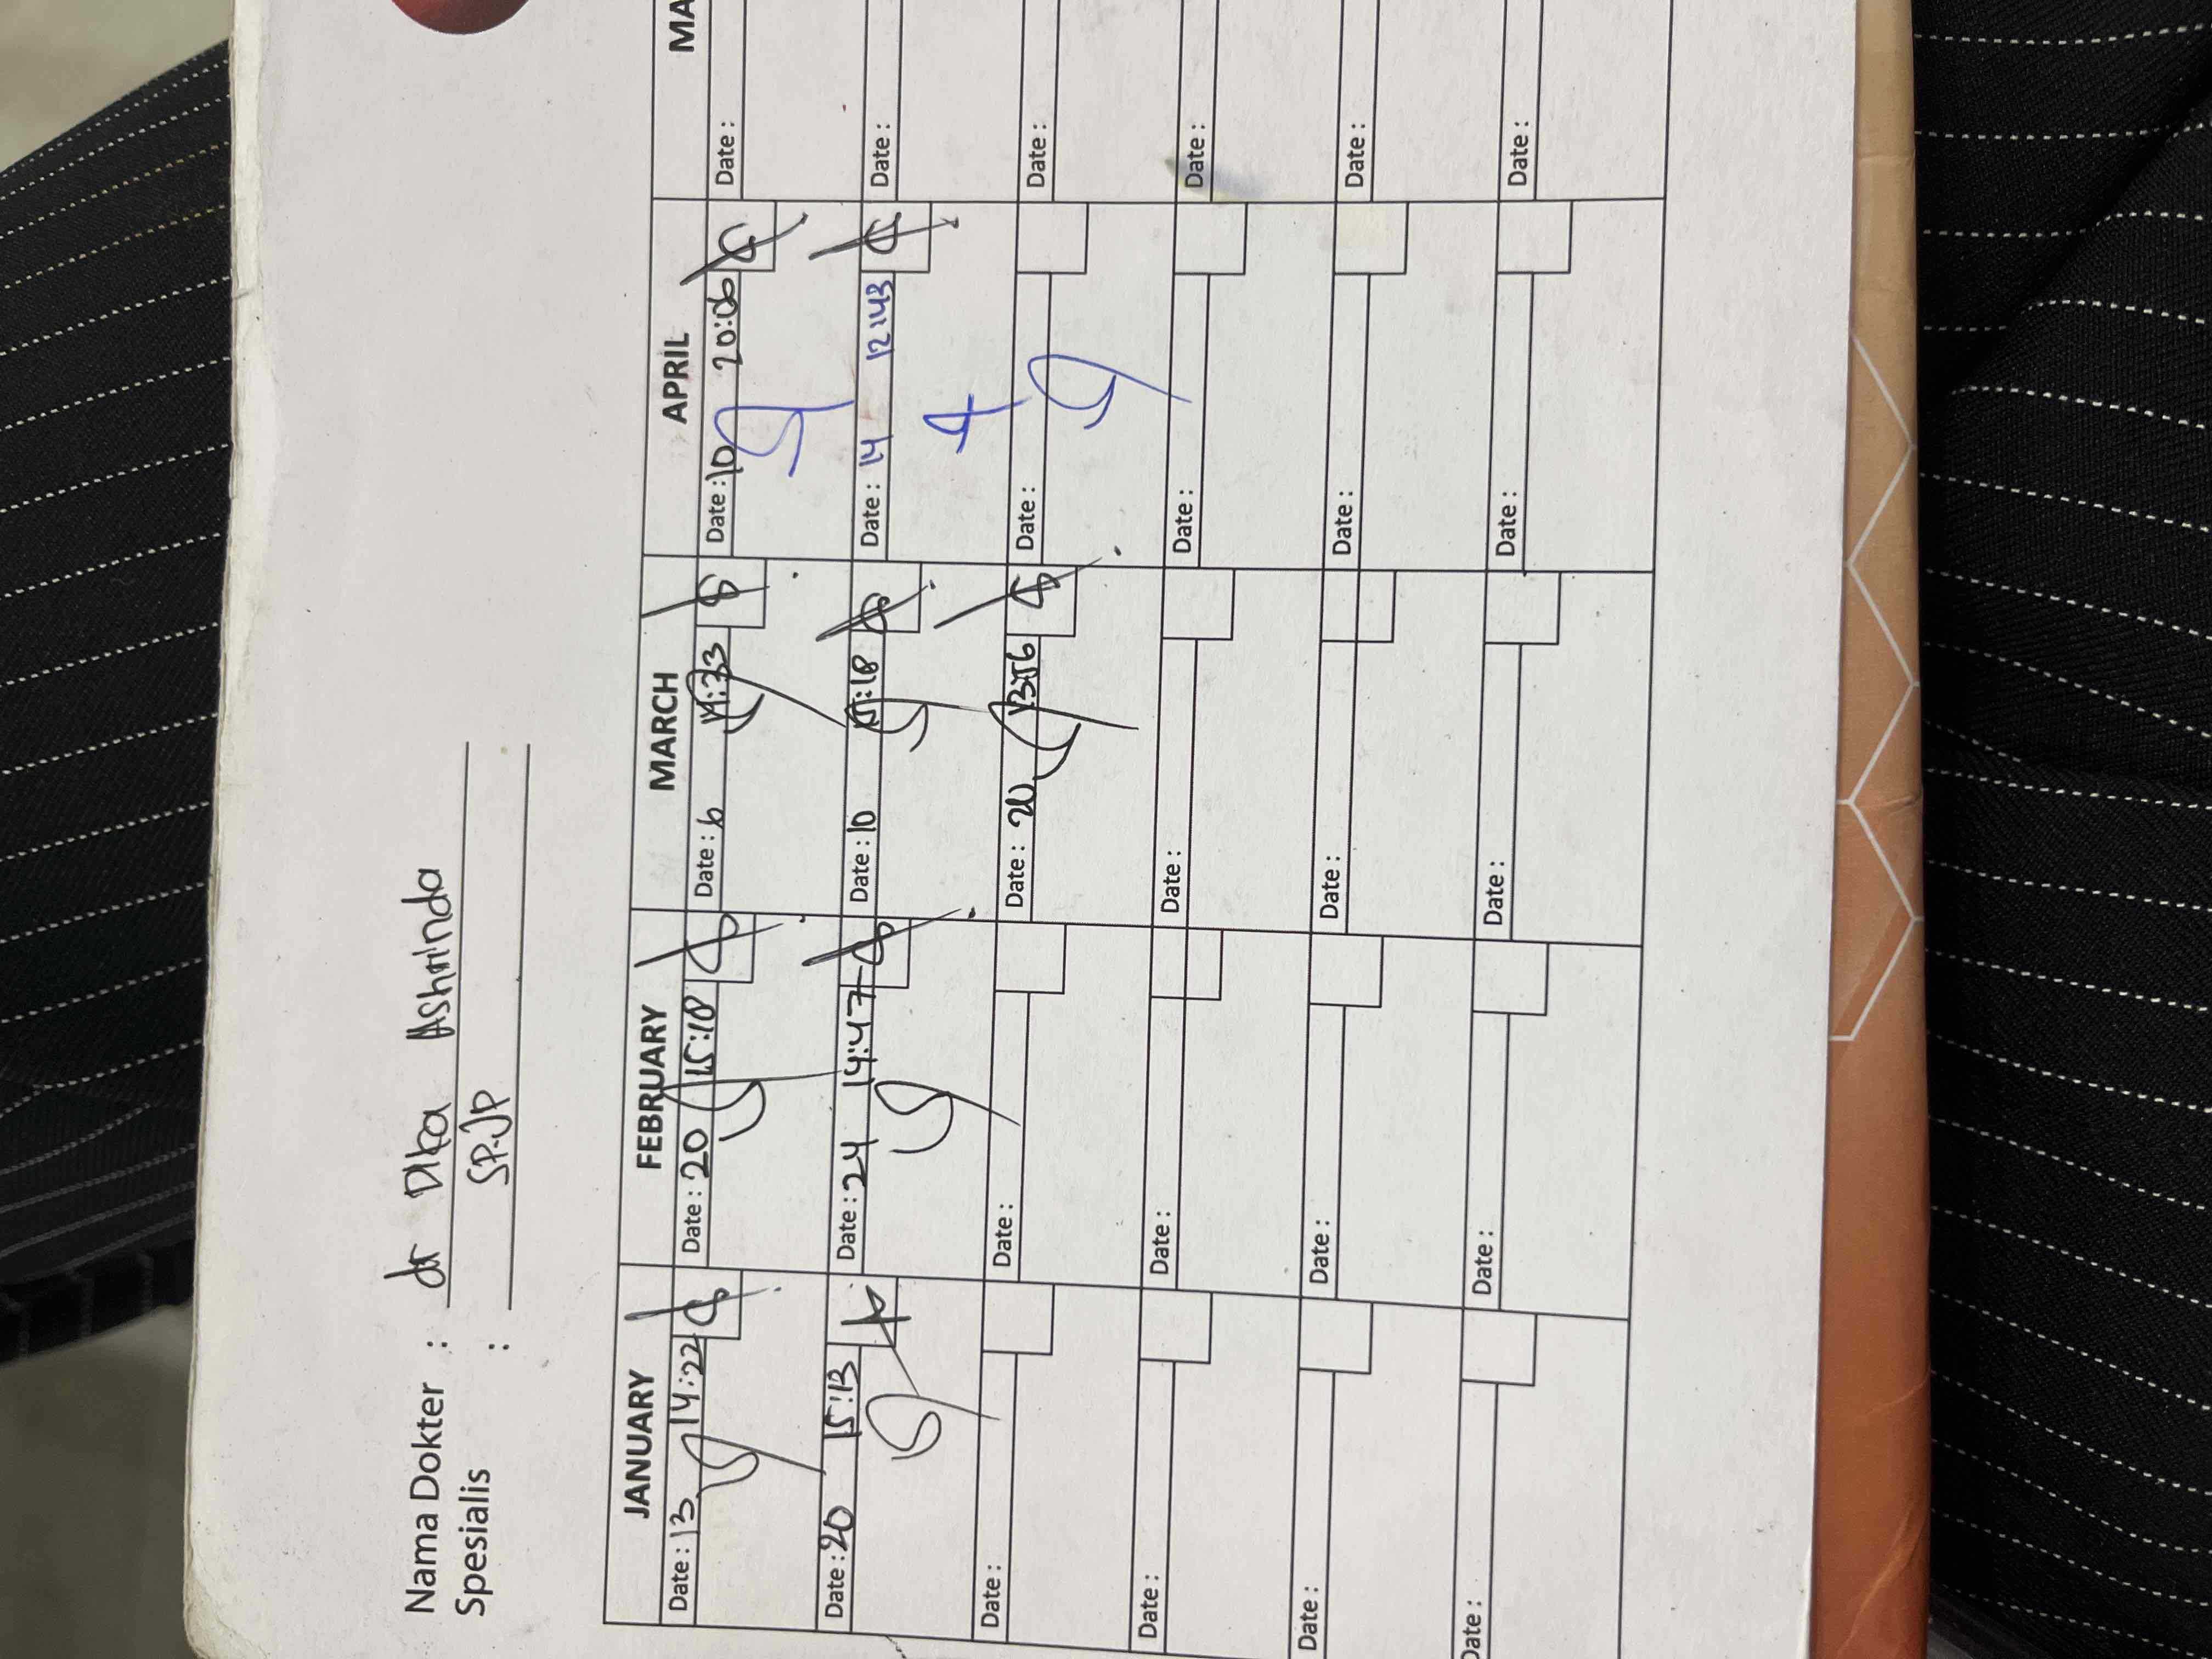 Nama Dokter : dr Dka Ashrinda
Spesialis : SP.JP
JANUARY FEBRUARY MARCH APRIL MA
Date : 13 14:22 Date : 20 15:18 Date : 6 14:33 Date : 10 20:06 Date :
Date : 20 15:13 Date : 24 14:47 Date : 10 :18 Date : 14 12:43 Date :
Date : Date : Date : 20 13:56 Date : Date :
Date : Date : Date : Date : Date :
Date : Date : Date : Date : Date :
Date : Date : Date : Date : Date :